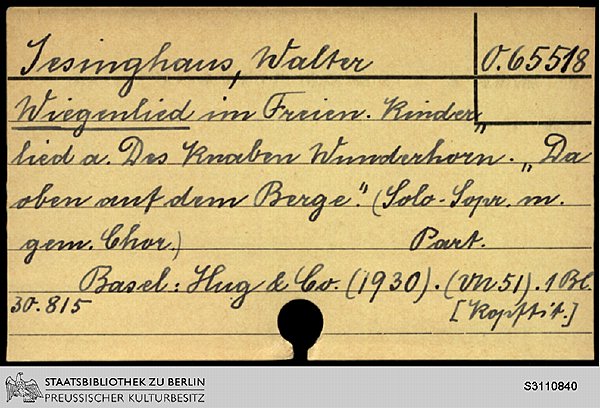 Jesinghaus, Walter
O.65518
Wiegenlied im Freien. Kinder„
lied a. Des Knaben Wunderhorn. „Da
oben auf dem Berge“. (Solo-Sopr. m.
gem. Chor.) Part.
Basel: Hug & Co. (1930). (VN 51). 1 Bl.
30.815
[Kopftit.]
STAATSBIBLIOTHEK ZU BERLIN
PREUSSISCHER KULTURBESITZ
S3110840